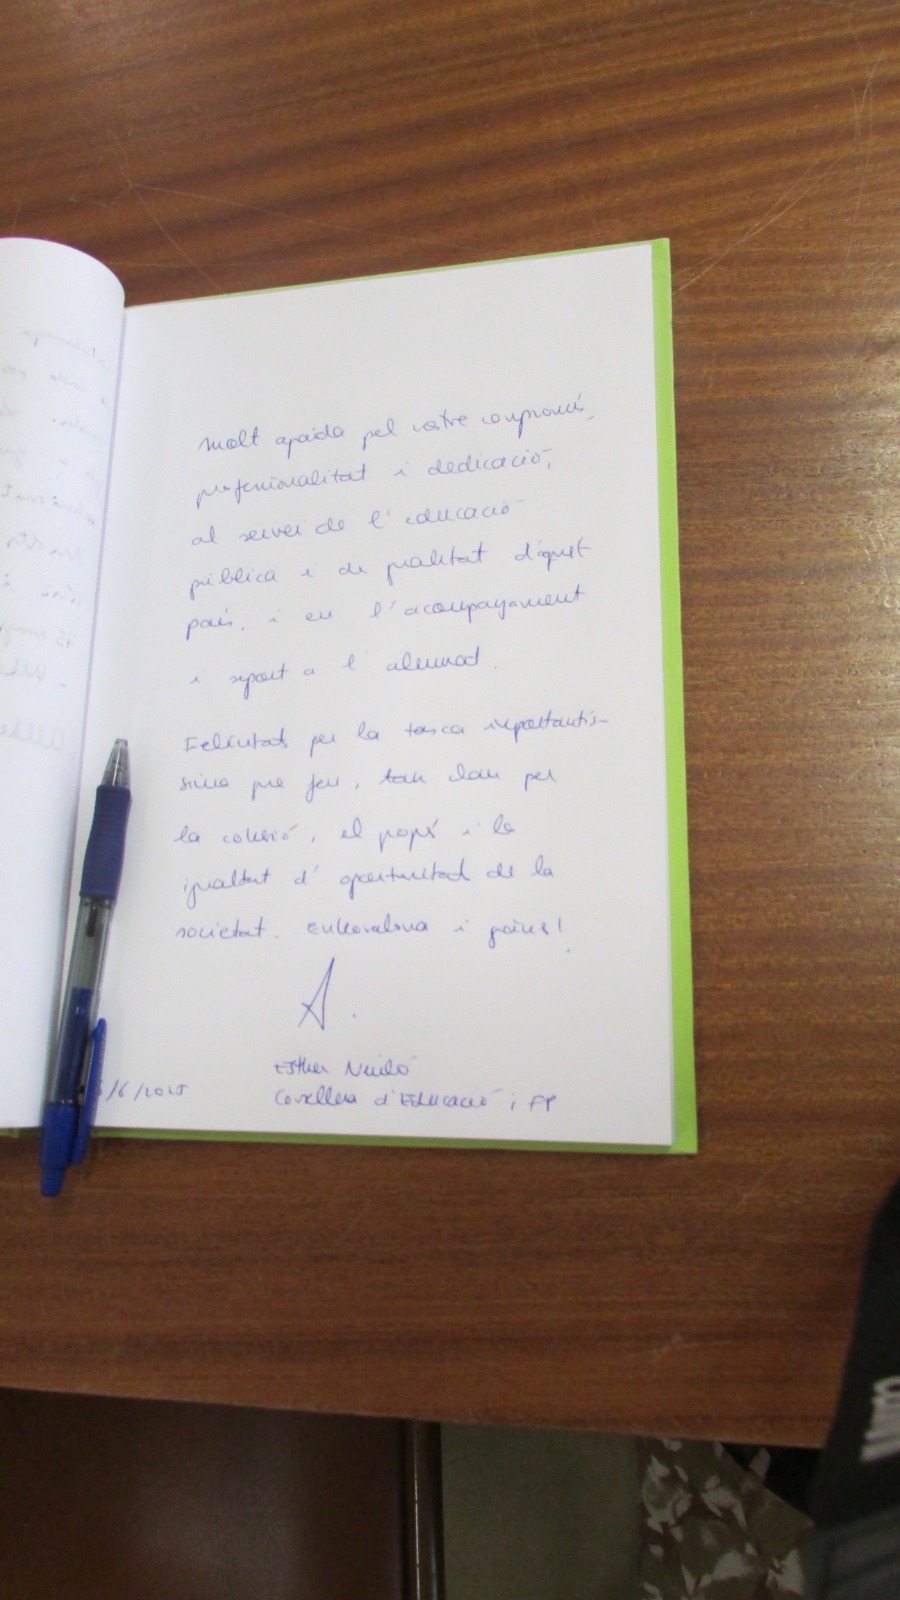 Molt agraïda pel vostre compromís,
professionalitat i dedicació,
al servei de l'educació
pública i de qualitat d'aquest
país, i en l'acompanyament
i suport a l'alumnat.
Felicitats per la tasca importantís-
sima que feu, tan clau per
la cohesió, el progrés i la
igualtat d'oportunitats de la
societat. Enhorabona i gràcies!
Esther Niubó
Consellera d'Educació i FP
/6/2025